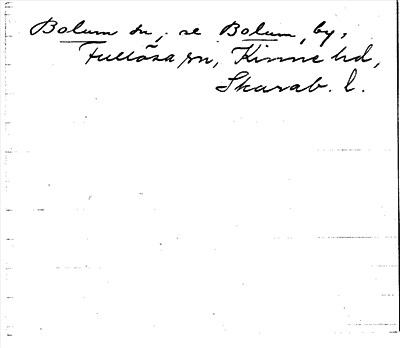 Bolum sn, se Bolum, by,
Fullösa sn, Kinne hd,
Skarab. l.